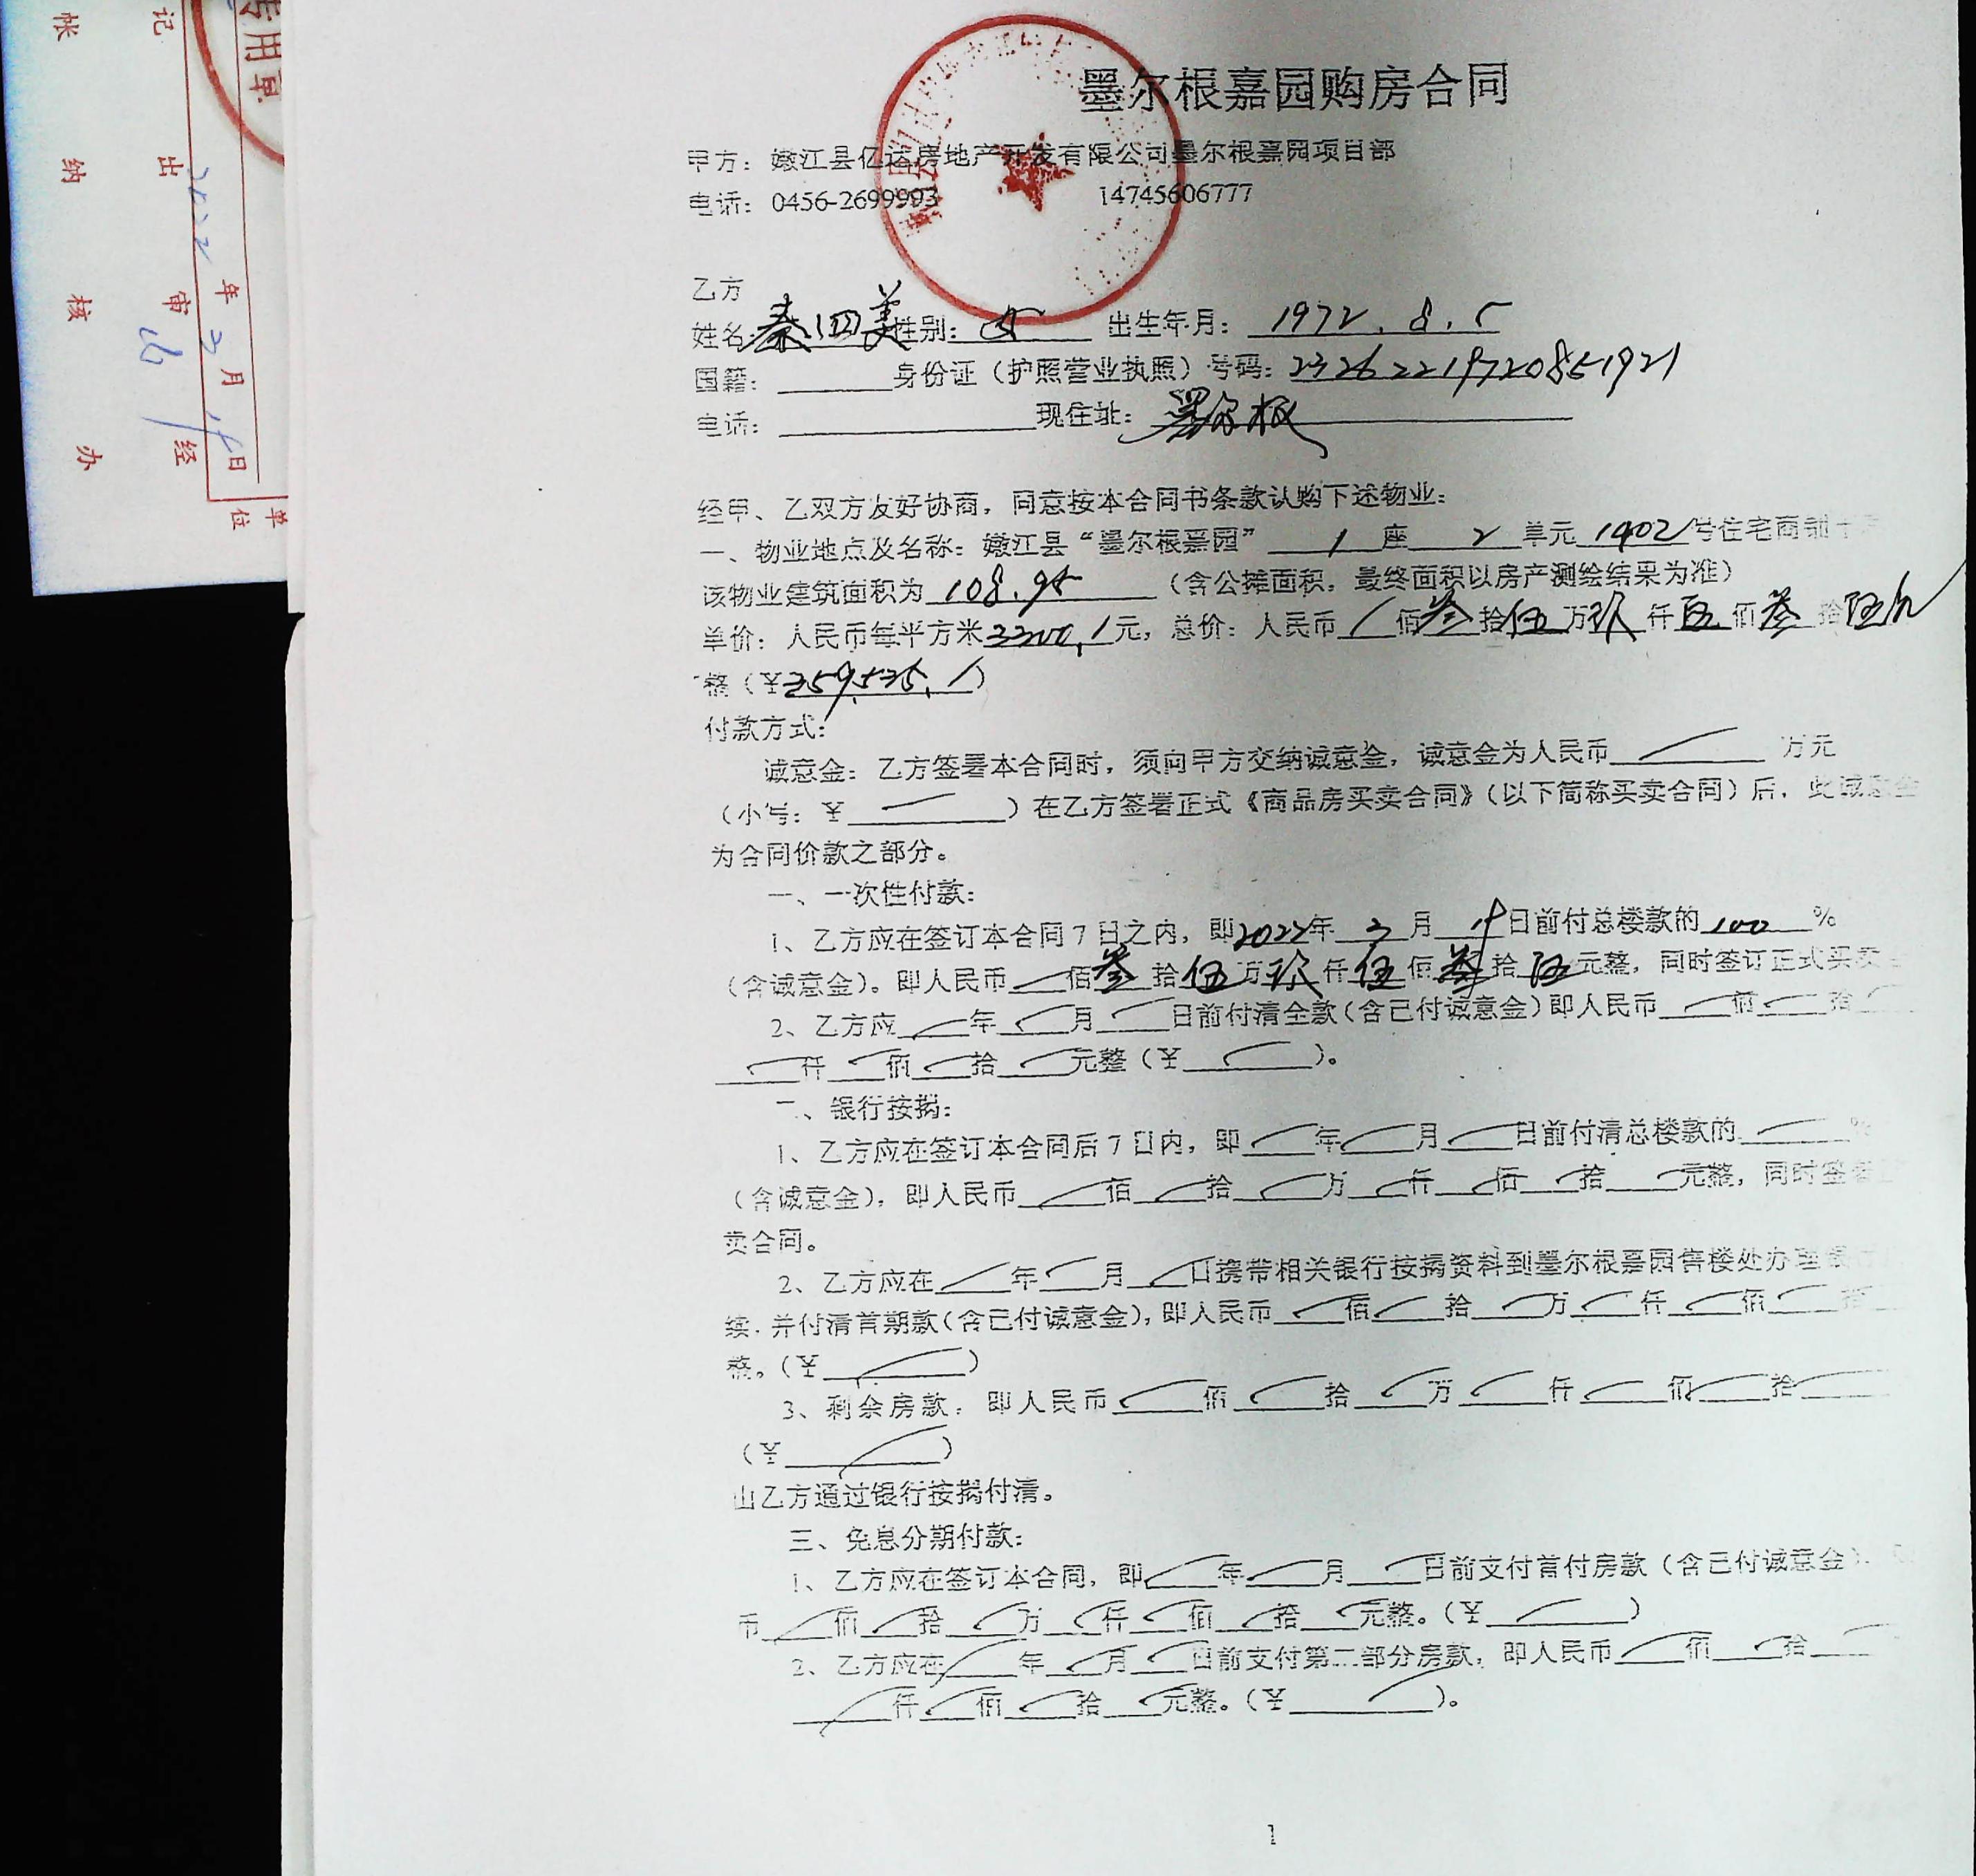 墨尔根嘉园购房合同
甲方：嫩江县亿达房地产开发有限公司墨尔根嘉园项目部
电话：0456-2699993 14745606777
乙方
姓名：秦四美 性别：女 出生年月：1972.8.5
国籍： 身份证（护照营业执照）号码：232622197208051921
电话： 现住址：墨尔根
经甲、乙双方友好协商，同意按本合同书条款认购下述物业：
一、物业地点及名称：嫩江县“墨尔根嘉园” 1 座 2 单元 1402 号住宅商铺
该物业建筑面积为 108.95 （含公摊面积，最终面积以房产测绘结果为准）
单价：人民币每平方米3300.1元，总价：人民币 / 佰叁拾伍万玖仟伍佰叁拾伍元
整（￥359535.1）
付款方式：
诚意金：乙方签署本合同时，须向甲方交纳诚意金，诚意金为人民币 万元
（小写：￥ ）在乙方签署正式《商品房买卖合同》（以下简称买卖合同）后，此诚意金
为合同价款之部分。
一、一次性付款：
1、乙方应在签订本合同7日之内，即2022年 3 月 日前付总楼款的 100 %
（含诚意金）。即人民币 佰叁拾伍万玖仟伍佰叁拾伍元整，同时签订正式买卖
2、乙方应 年 月 日前付清全款（含已付诚意金）即人民币 佰 拾
仟 佰 拾 元整（￥ ）。
二、银行按揭：
1、乙方应在签订本合同后7日内，即 年 月 日前付清总楼款的 %
（含诚意金），即人民币 佰 拾 万 仟 佰 拾 元整，同时签署
卖合同。
2、乙方应在 年 月 日携带相关银行按揭资料到墨尔根嘉园售楼处办理银行
续，并付清首期款（含已付诚意金），即人民币 佰 拾 万 仟 佰 拾
整。（￥ ）
3、剩余房款，即人民币 佰 拾 万 仟 佰 拾
（￥ ）
由乙方通过银行按揭付清。
三、免息分期付款：
1、乙方应在签订本合同，即 年 月 日前支付首付房款（含已付诚意金）
币 佰 拾 万 仟 佰 拾 元整。（￥ ）
2、乙方应在 年 月 日前支付第二部分房款，即人民币 佰 拾
仟 佰 拾 元整。（￥ ）。
1
专用章
记帐
出纳
审核
经办
单位
2022年3月 日